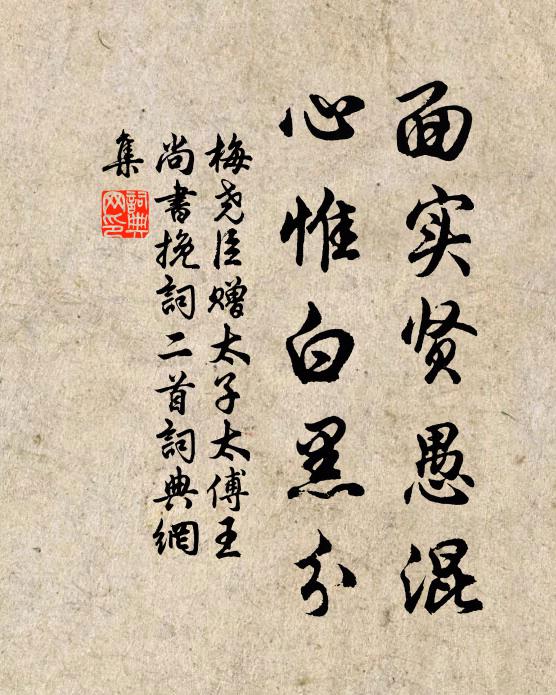 面实贤愚混
心惟白黑分
梅尧臣赠太子太傅王
尚書挽詞二首詞典網
集
詞典
网印